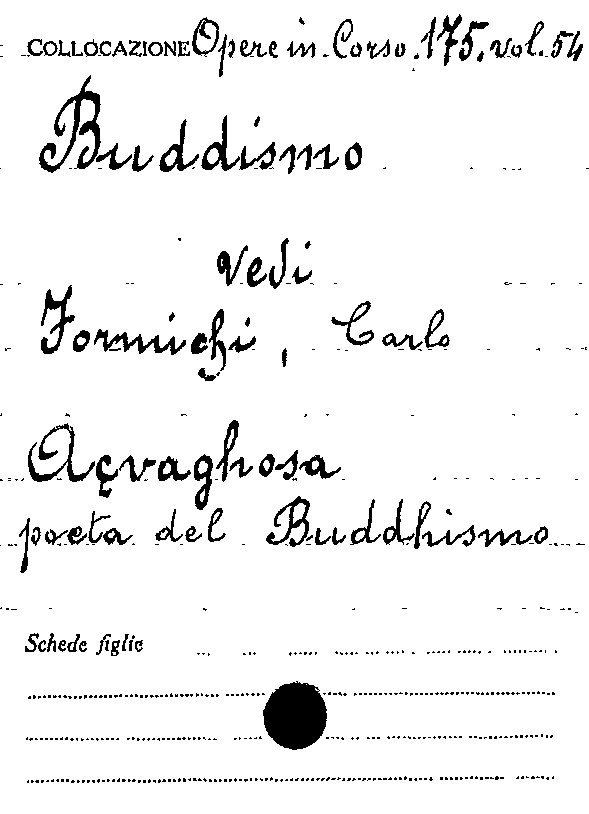 COLLOCAZIONE Opere in Corso. 175. vol. 54
Buddismo
vedi
Formichi, Carlo
Açvaghosa
poeta del Buddhismo
Schede figlie